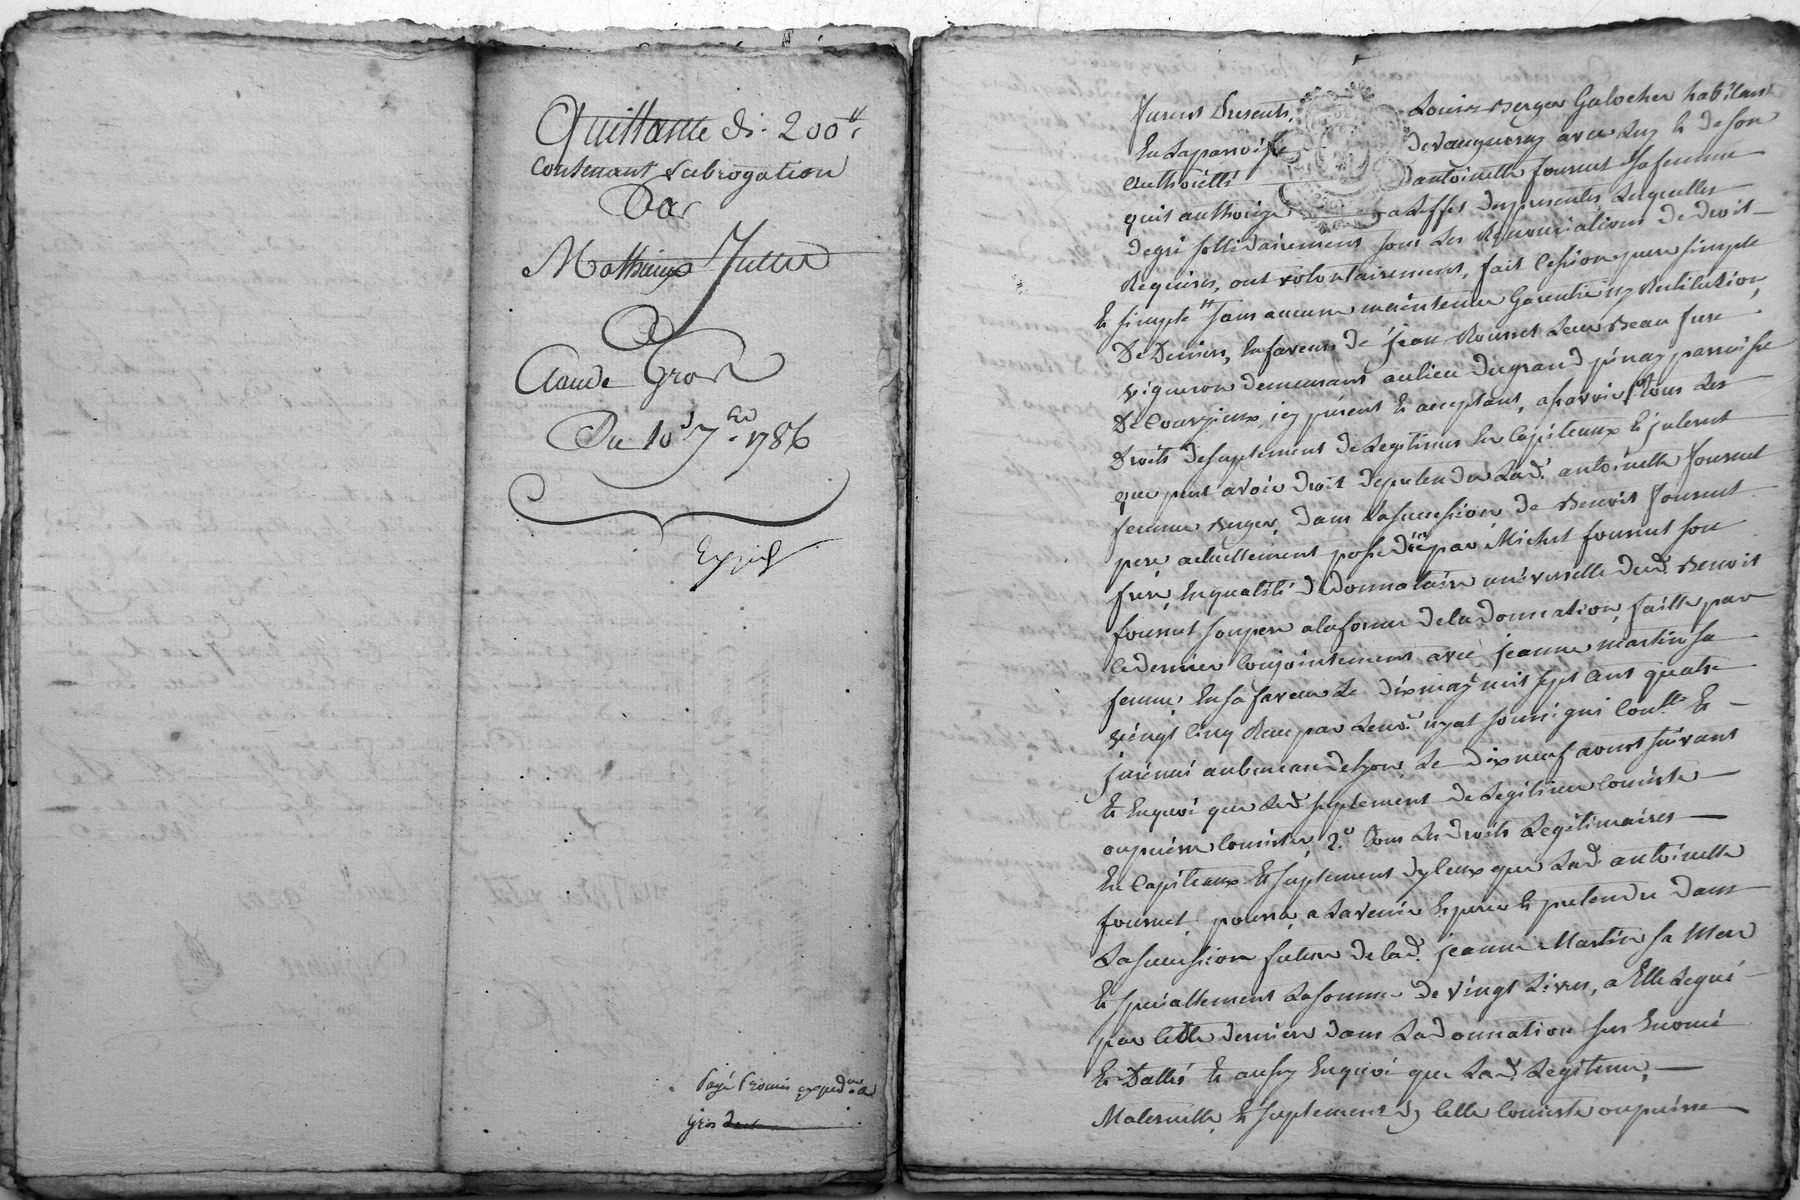 Quittance de 200 ″
Contenant subrogation
Par
Mathieux
A
Claude Gros
Du 10 7 1786
Exp
Payé
Gros
Furent Presents, Louis Berger Galocher habitant
En La paroisse de Vaugneray avec Luy et de Son
Authorité antoinette fournet Sa femme
quil authorize a Leffet des presentes Lesquelles
de gré sollidairement sous Les Renonciations de droit
Requises, ont volontairement, fait Cession pure simple
Et simple sans aucune maintenue Garentie ny Restitution
De Deniers, En faveur de Jean Rousset Leur Beau frere
vigneron demeurant au lieu du grand paroisse
De Courzieux, icy present Et acceptant, a scavoir tous Les
Droits de suplement de Legitime En Capiteaux Et
que peut avoir droit de pretendre Lad. antoinette fournet
femme Berger, dans La sucession de Benoit fournet
pere actuellement possedée par Michel fournet son
frere, En qualité de donnataire universelle dud. Benoit
fournet son pere a la forme de la donnation, faitte par
Ce dernier Conjointement avec jeanne martin sa
femme, En sa faveur Le dix may mil sept Cent quatre
vingt Cinq Recue par Lenr. nyat qui Conlle Et
au bureau de Lyon, Le dix neuf aoust suivant
Et En quoi que Led. suplement de Legitime Consiste
ou puisse Consister, 2.o tous Les droits Legitimaires
En Capiteaux Et suplement dyceux que Lad. antoinette
fournet, pourra, a Lavenir Esperer Et pretendre dans
La sucession future de lad. jeanne Martin sa Mere
Et speciallement La somme de vingt Livres, a Elle Legué
par Cette derniere dans La donnation sus Enoncé
Et Dattée Et aussy En quoi que Lad. Legitime,
Maternelle Et suplement dy Celle Consiste ou puisse